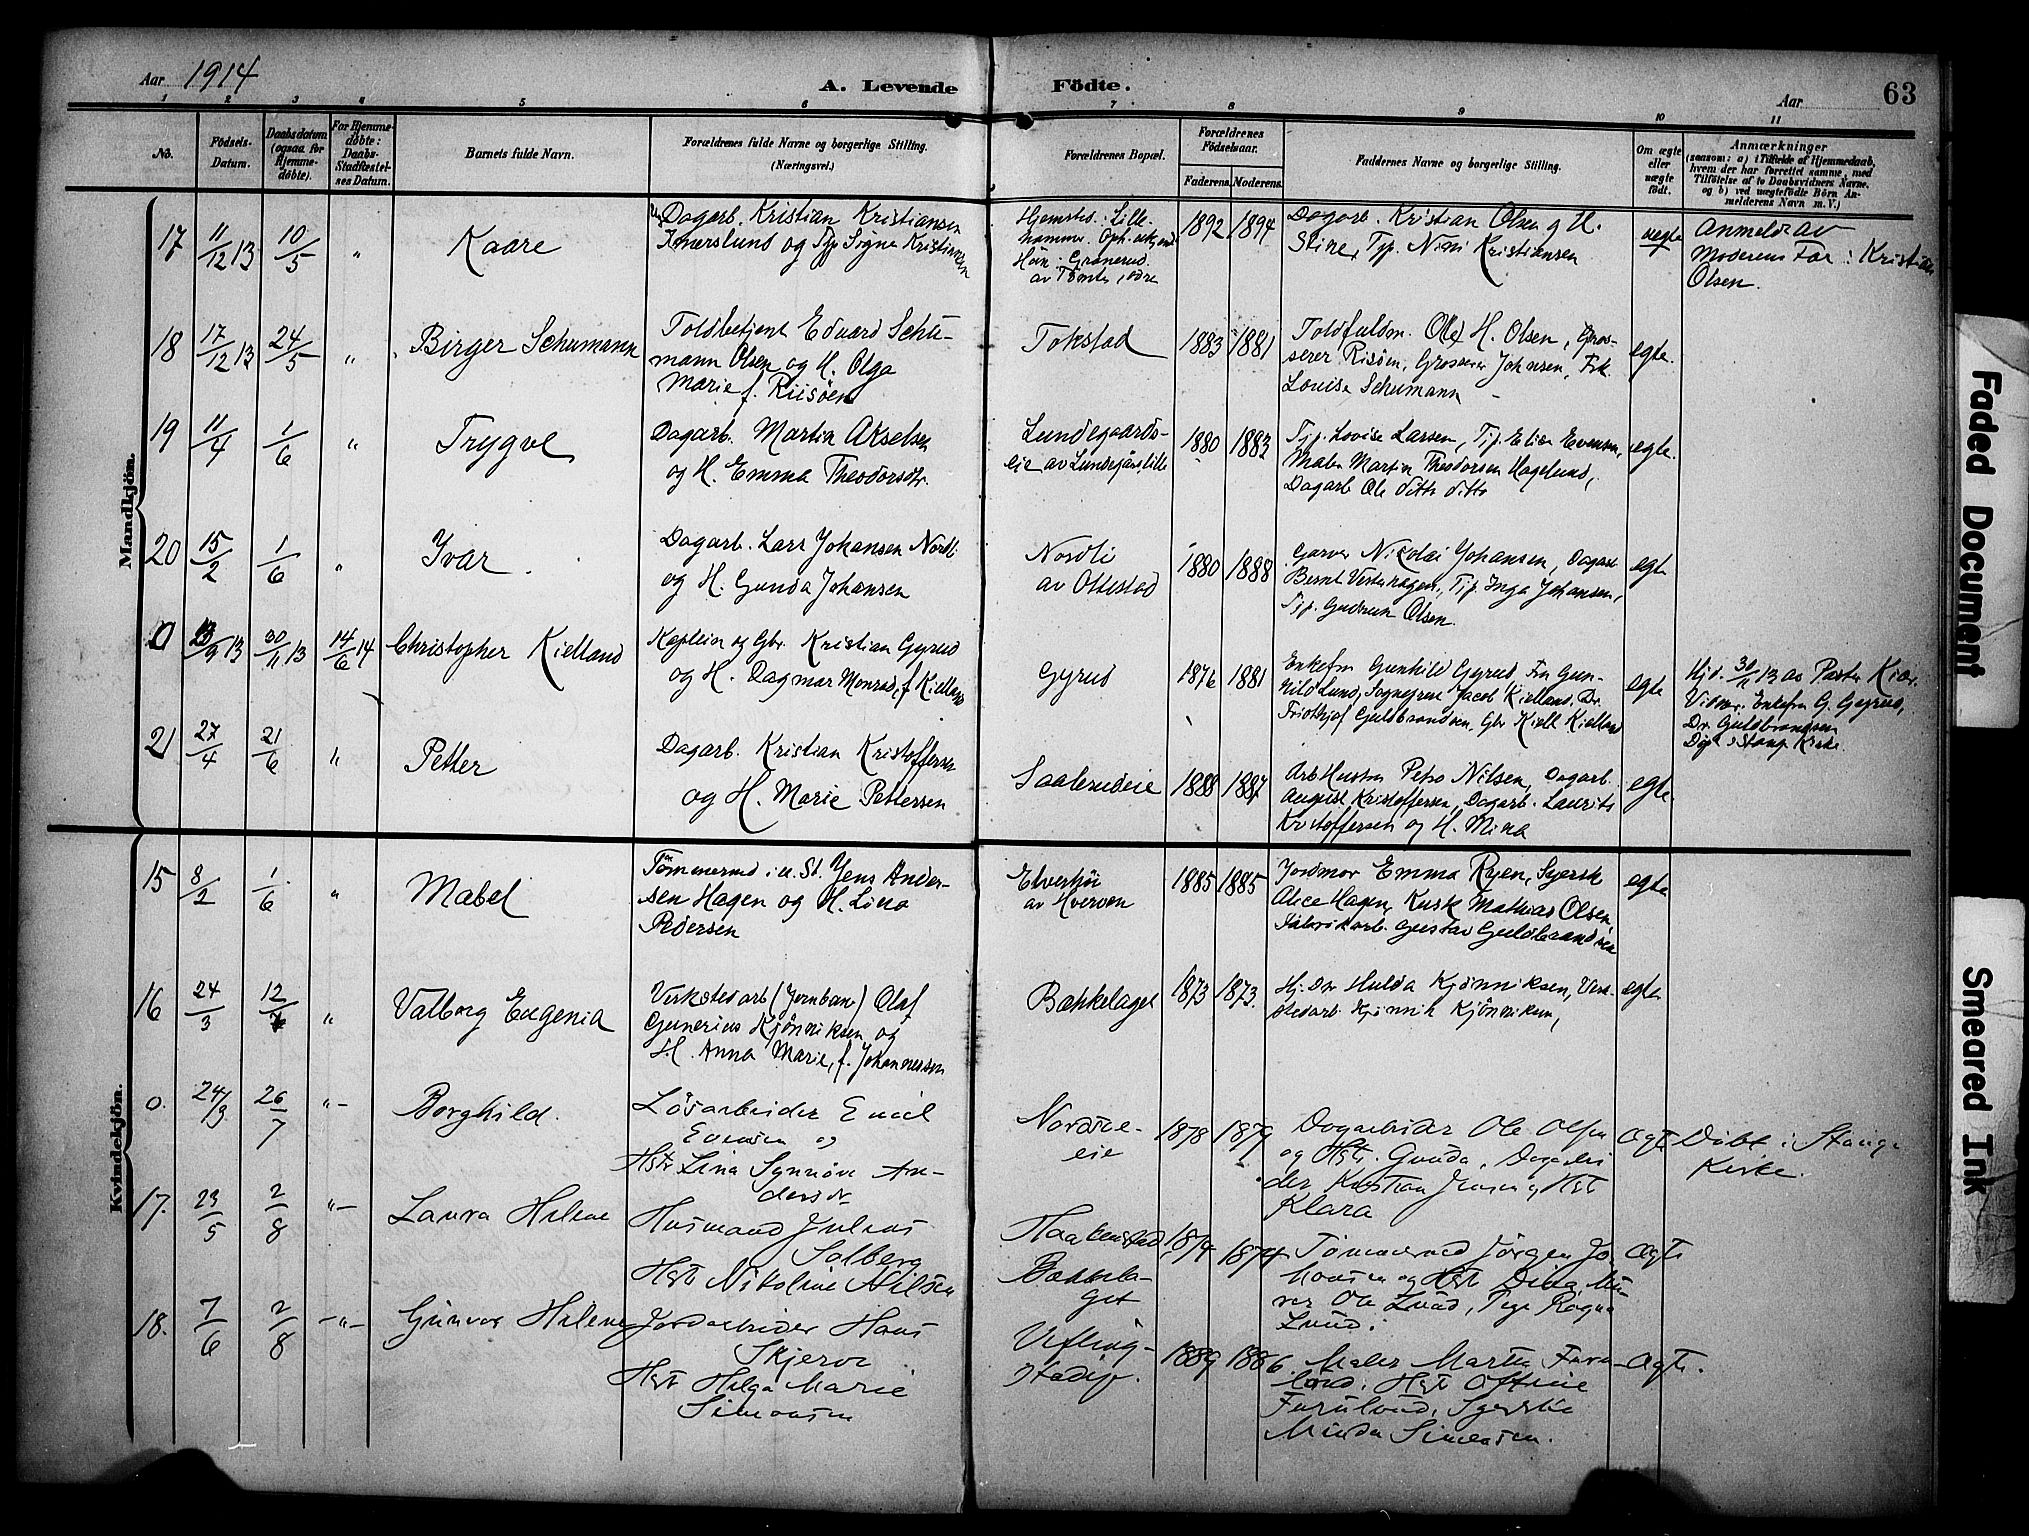 Aar 1914
A. Levende Födte.
Aar 63
1 2 3 4 5 6 7 8 9 10 11
No.
Födsels-
Datum.
Daabsdatum
(ogsaa for
Hjemme-
döbte).
For Hjemme-
döbte:
Daabs-
Stadfæstel-
ses Datum.
Barnets fulde Navn.
Forældrenes fulde Navne og borgerlige Stilling.
(Næringsvei.)
Forældrenes Bopæl.
Forældrenes
Födselsaar.
Faderens. Moderens.
Faddernes Navne og borgerlige Stilling.
Om ægte
eller
uægte
födt.
Anmærkninger
(saasom: a) i Tilfælde af Hjemmedaab,
hvem der har forrettet samme, med
Tilföielse af to Daabsvidners Navne,
og b) ved uægtefödte Börn An-
melderens Navn m. V.)
Mandkjön.
17 11/12 13 10/5 " Kaare
Dagarb. Kristian Kristiansen
og Tjp Signe Kristiansen
Hjemsted: Lille-
hammer.
1892 1894
Dagarb. Kristian Olsen og H.
Stine, Tjp. Kristiansen
uegte
Anmeldt av
Moderens Far: Kristian
Olsen.
18 17/12 13 24/5 " Birger Schumann
Toldbetjent Edvard Schu-
mann Olsen og H. Olga
Marie f. Riisöen
Tokstad
1883 1881
Toldfuldm. H. Olsen, Gros-
serer Risöen, Grosserer Johansen, Frk.
Louise Schumann
egte.
19 11/4 1/6 " Trygve
Dagarb. Martin Akselsen
og H. Emma Theodorsdtr.
Lundegaards-
eie av Lundegård, lille
1880 1883
Tjp. Lovise Larsen, Tjp. Elise Evensen,
Maler Martin Theodorsen Hagelund,
Dagarb Ole ditto ditto
egte.
20 15/2 1/6 " Ivar
Dagarb. Lars Johansen Nordli
og H. Gunda Johansen
Nordli
av Ottestad
1880 1888
Garver Nikolai Johansen, Dagarb
Bernt Tjp. Inga Johansen,
Tjp. Gudrun Olsen.
egte
0 /9 13 30/11 13 14/6 14 Christopher Kielland
Kaptein og Gbr. Kristian Gyrud
og H. Dagmar Monrad, f. Kielland
Gyrud
1876 1881
Enkefru Gunhild Gyrud, Fru Gun-
hild Lund, Sogneprest Jacob Kielland, Dr.
Fridthjof Guldbrandsen, Gbr Kield Kielland
egte
Hjd. 30/11 13 av Pastor Kiær.
Vidner: Enkefru G. Gyrud,
Dr. Guldbrandsen
Döpt i Stange Kirke.
21 27/4 21/6 " Petter
Dagarb. Kristian Kristoffersen
og H. Marie Pettersen
Saalerudeie
1888 1887
Arb Hustru Petra Nilsen, Dagarb.
August Kristoffersen, Dagarb. Laurits
Kristoffersen og H. Mina
egte.
Kvindekjön.
15 8/2 1/6 " Mabel
Tömmermd i u. St. Jens Ander-
sen Hagen og H. Lina
Pedersen
Elverhöi
av Hverven
1885 1885
Jordmor Emma Ryen, Syersk
Alice Hagen, Kusk Mathias Olsen,
Fabrikarb. Gustav Guldbrandsen
egte
16 24/3 12/7 " Valborg Eugenia
Verkstedarb (Jernban) Olaf
Gunerius Kjönniksen og
H. Anna Marie, f. Johannessen
Bækkelaget
1873 1873.
Hulda Kjönniksen, Verk-
stedarb. Kjönniksen,
egte
0. 24/3 26/7 "- Borghild.
Lösarbeider Emil
Evensen og
Hst Lina Synnöve An-
dersdr
Nordsve-
eie
1878 1879
Dagarbeider Ole Olsen
og Hst. Gunda, Dagarbei
der Kristian Jensen og Hst
Klara
Ægte
Döbt i Stange
Kirke.
17. 23/5 2/8 "- Laura Helene
Husmand Julius
Solberg
Hst Nikoline Nilsen
Haakenstad
Bækkela-
get
1874 1874
Tömmermd Jörgen Jo
hansen og Hst Dina, Mu-
rer Ole Lund, Tjp Ragna
Lund.
Ægte
18. 7/6 2/8 -"- Gunvor Helene
Jordarbeider Hans
Skjerve
Hst Helga Marie
Simonsen
Vefling-
stadeje.
1889 1886
Maler Martin Furu-
lund, Hst
Furulund, Syerske
Minda Simonsen.
Ægte.
Faded Document
Smeared Ink